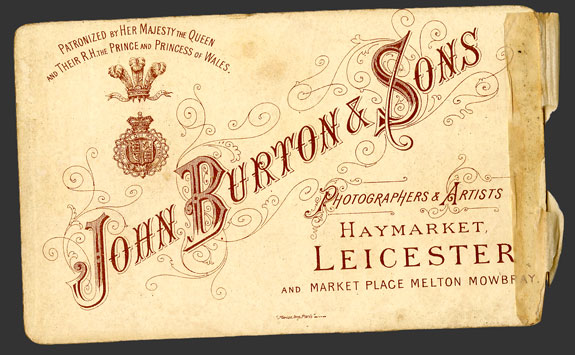 Patronized by Her Majesty the Queen
and Their R.H. the Prince and Princess of Wales.
John Burton & Sons
Photographers & Artists
Haymarket,
Leicester
and Market Place Melton Mowbray.